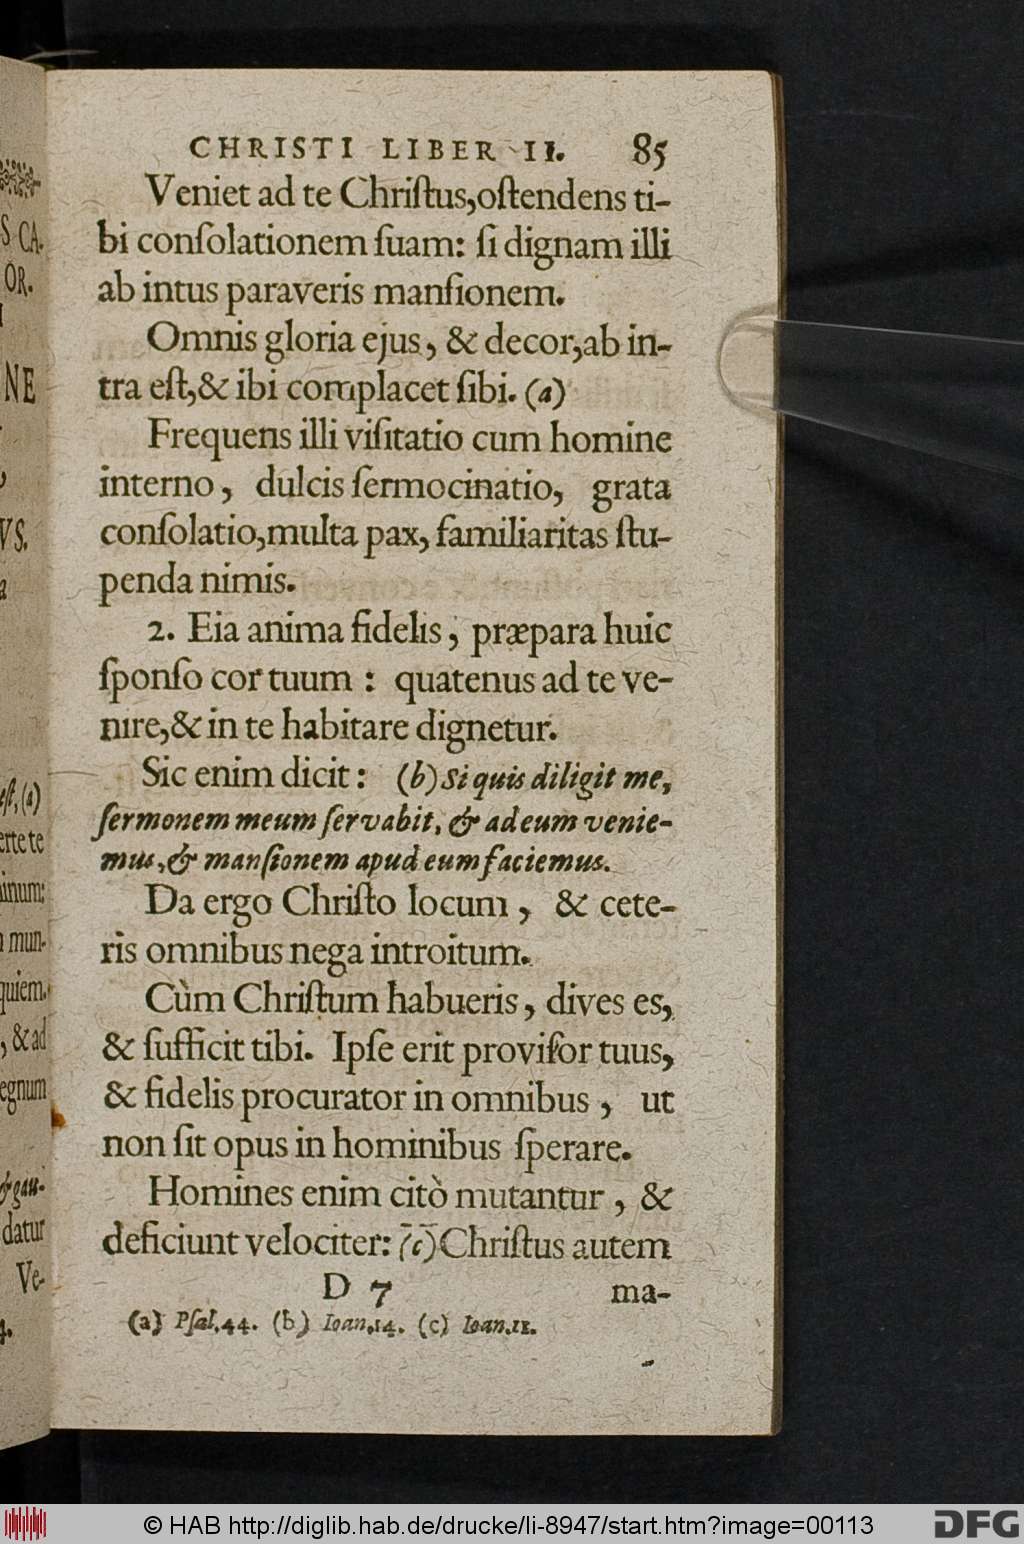 CHRISTI LIBER II. 85
Veniet ad te Chriſtus,oſtendens ti-
bi conſolationem ſuam: ſi dignam illi
ab intus paraveris manſionem.
Omnis gloria ejus, & decor,ab in-
tra eſt,& ibi complacet ſibi. (a)
Frequens illi viſitatio cum homine
interno, dulcis ſermocinatio, grata
conſolatio,multa pax, familiaritas ſtu-
penda nimis.
2. Eia anima fidelis, præpara huic
ſponſo cor tuum : quatenus ad te ve-
nire,& in te habitare dignetur.
Sic enim dicit : (b) Si quis diligit me,
ſermonem meum ſervabit, & ad eum venie-
mus,& manſionem apud eum faciemus.
Da ergo Chriſto locum, & cete-
ris omnibus nega introitum.
Cùm Chriſtum habueris, dives es,
& ſufficit tibi. Ipſe erit proviſor tuus,
& fidelis procurator in omnibus, ut
non ſit opus in hominibus ſperare.
Homines enim citò mutantur, &
deficiunt velociter: (c) Chriſtus autem
D 7 ma-
(a) Pſal.44. (b) Ioan.14. (c) Ioan.12.
S CA.
OR.
NE
VS.
eſt,(a)
erte te
inum:
mun-
quiem.
, & ad
egnum
& gau-
datur
Ve-
4.
© HAB http://diglib.hab.de/drucke/li-8947/start.htm?image=00113
DFG